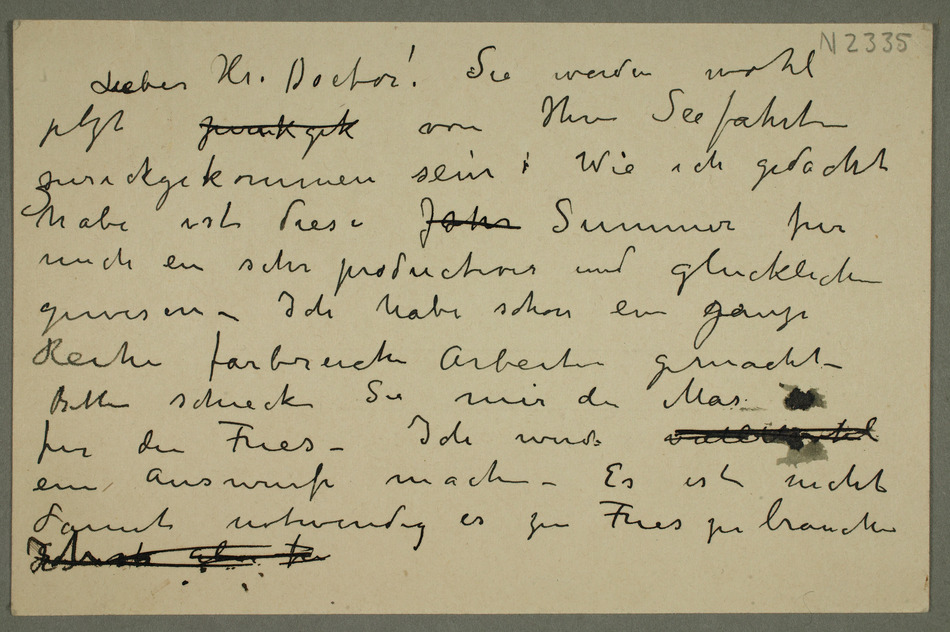 N2335
Lieber Hr. Doctor! Sie werden wohl
jetzt zurükgek von Ihre Seefahrten
zurückgekommen sein! Wie ich gedacht
habe ist diese Jahr Summer für
mich ein sehr productiver und glücklichen
gewesen – Ich habe schon ein ganze
Reihe farbreiche Arbeiten gemacht –
Bitte schicke Sie mir die Mas
für die Fries – Ich werde
ein Auswurf machen – Es ist nicht
damit notwendig es zu Fries zu brauchen